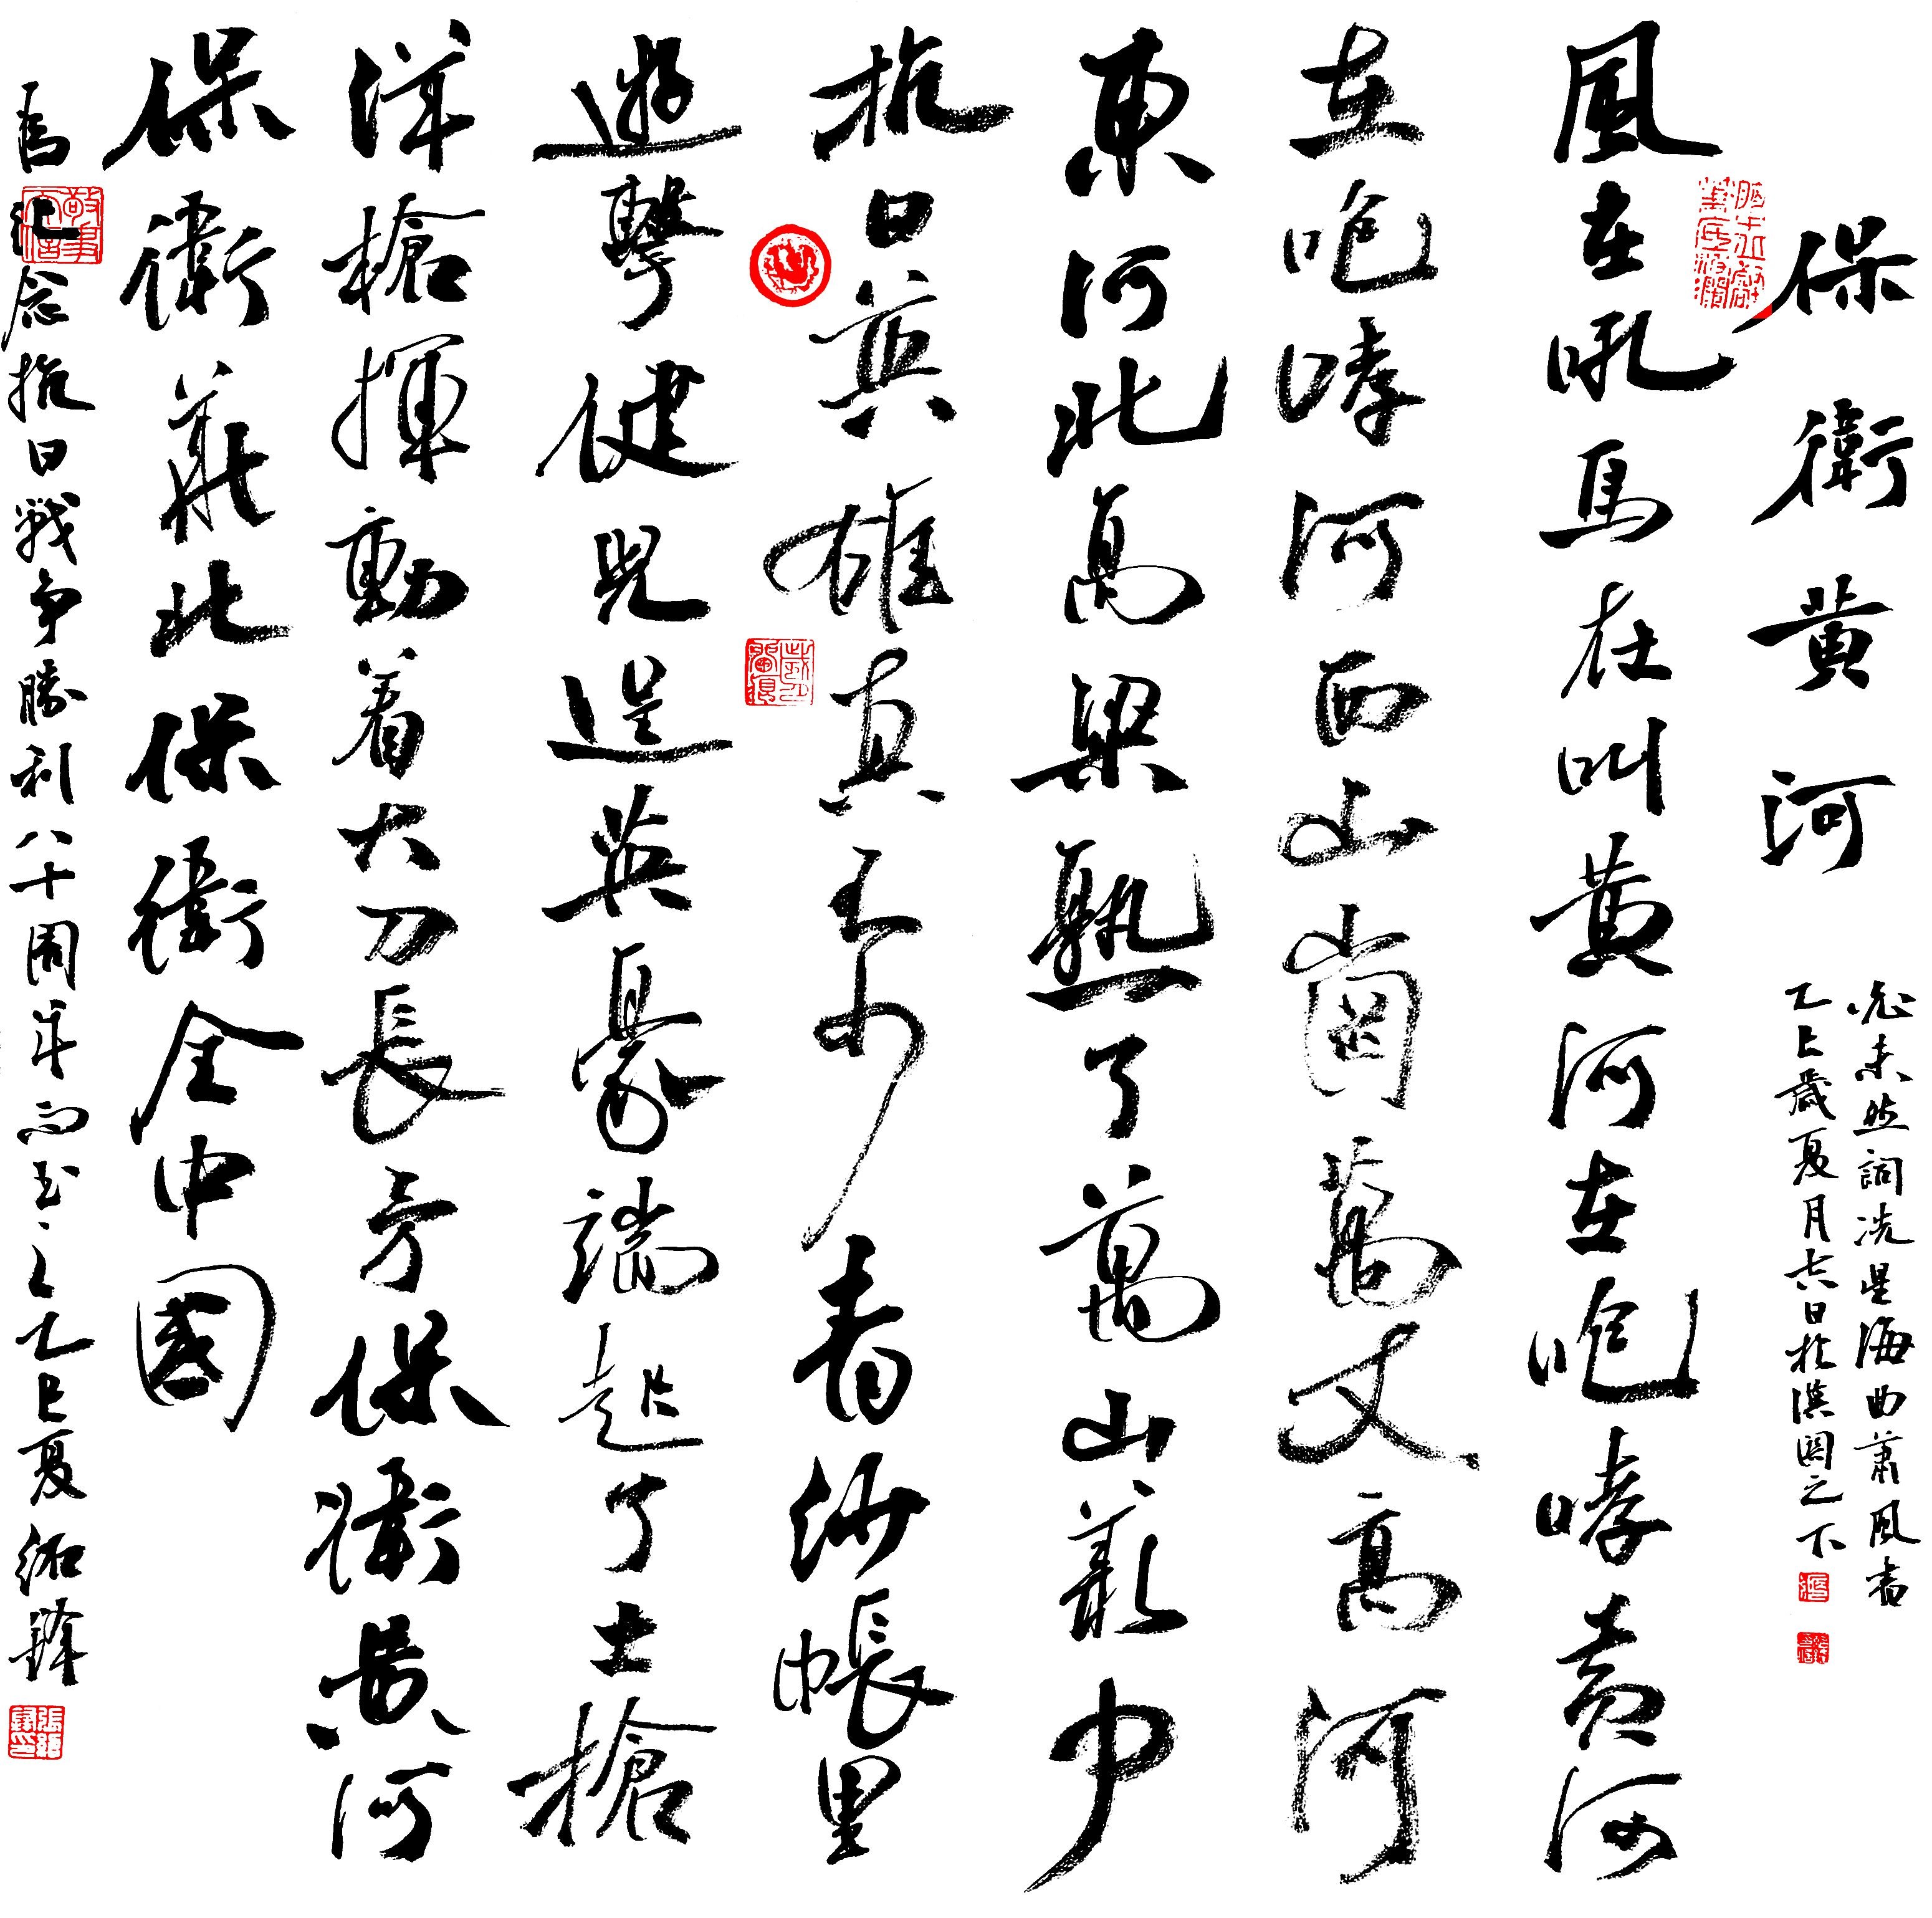 保衛黄河
光未然詞冼星海曲蕭風書
乙巳歲夏月吉日於漢之下
風在吼馬在叫黄河在咆哮黄河
在咆哮河西山崗萬丈高河
東河北高粱熟了萬山叢中
抗日英雄真不少青紗帳里
遊擊健兒逞英豪端起了土槍
洋槍揮動着大刀長矛保衛黄河
保衛華北保衛全中國
为纪念抗日戰争勝利八十周年而书之乙巳夏紹鋒